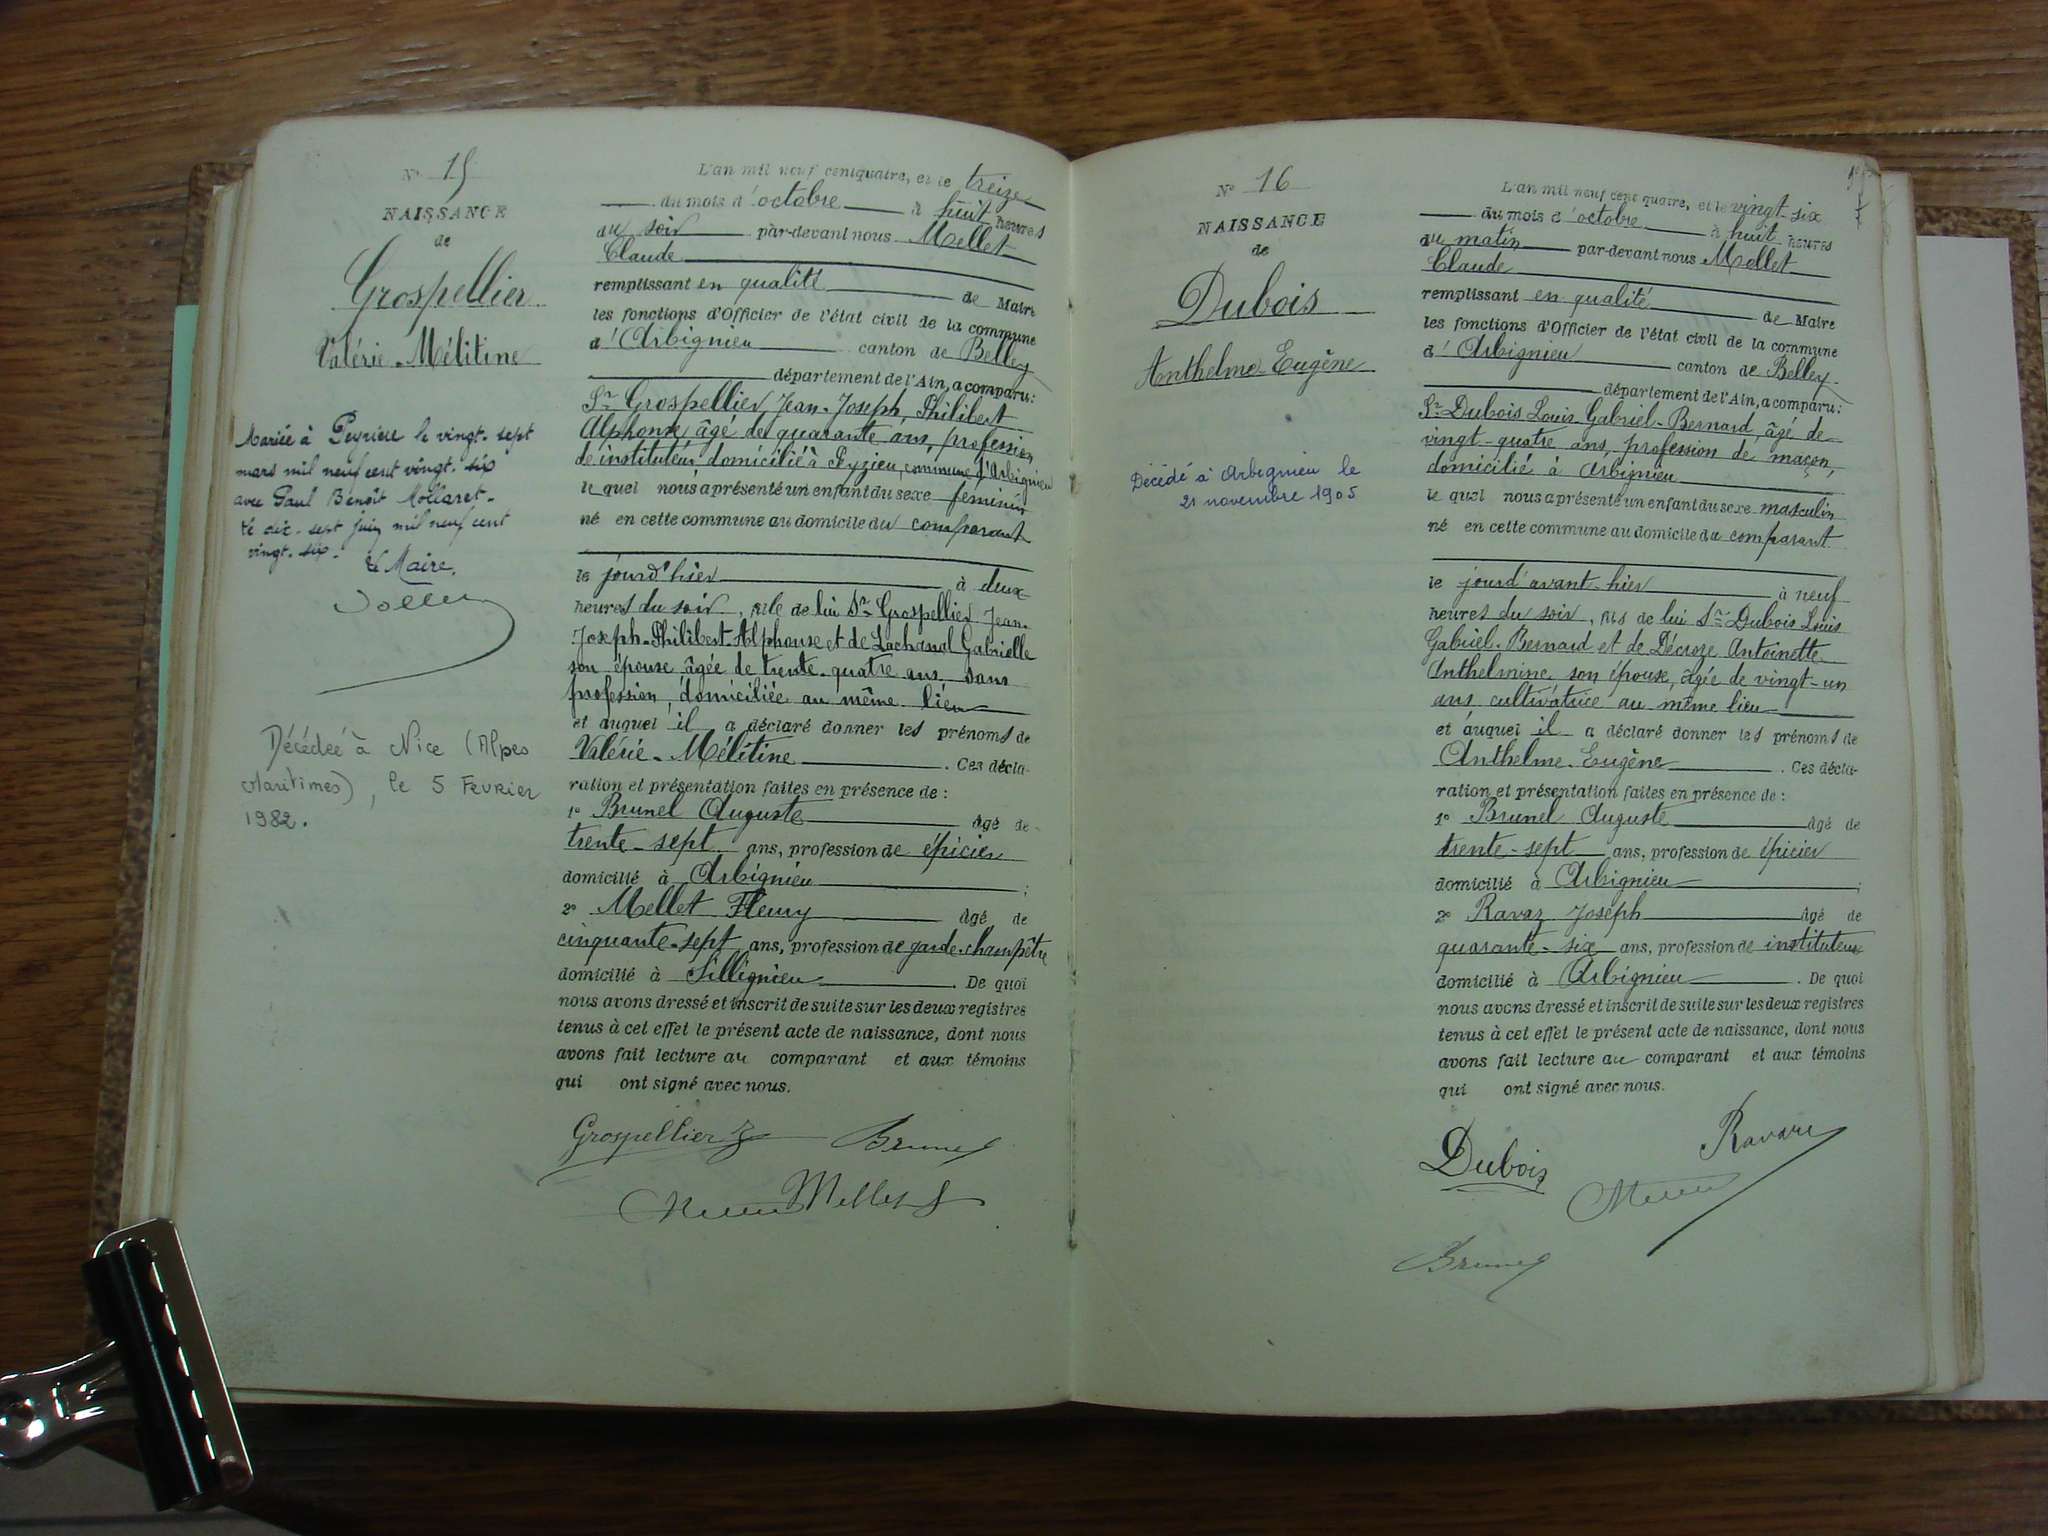 N° 15
NAISSANCE
de
Grospellier
Valérie-Mélitine
Mariée à Peyrieu le vingt-sept
mars mil neuf cent vingt-six
avec Paul Benoît Mollaret-
Le dix-sept juin mil neuf cent
vingt-six.
Le Maire,
Décédée à Nice (Alpes
Maritimes), le 5 Février
1982.
L'an mil neuf cent quatre, et le treize
du mois d'octobre à huit heures
du soir par-devant nous Mellet
Claude
remplissant en qualité de Maire
les fonctions d'Officier de l'état civil de la commune
d'Arbignieu canton de Belley
département de l'Ain, a comparu:
Sr Grospellier Jean-Joseph, Philibert
Alphonse, âgé de quarante ans, profession
de instituteur domicilié à Pyzieu, commune d'Arbignieu
le quel nous a présenté un enfant du sexe féminin
né en cette commune au domicile du comparant
le jourd'hier à deux
heures du soir, fille de lui Sr Grospellier Jean-
Joseph-Philibert-Alphonse et de Lachanal Gabrielle
son épouse âgée de trente-quatre ans, sans
profession, domiciliée au même lieu
et auquel il a déclaré donner les prénoms de
Valérie-Mélitine. Ces décla-
ration et présentation faites en présence de :
1° Brunel Auguste âgé de
trente-sept ans, profession de épicier
domicilié à Arbignieu ;
2° Mellet Fleury âgé de
cinquante-sept ans, profession de garde-champêtre
domicilié à Sillignieu. De quoi
nous avons dressé et inscrit de suite sur les deux registres
tenus à cet effet le présent acte de naissance, dont nous
avons fait lecture au comparant et aux témoins
qui ont signé avec nous.
Grospellier Brunel
Mellet
N° 16
NAISSANCE
de
Dubois
Anthelme-Eugène
Décédé à Arbignieu le
21 novembre 1905
L'an mil neuf cent quatre, et le vingt-six
du mois d'octobre à huit heures
du matin par-devant nous Mellet
Claude
remplissant en qualité de Maire
les fonctions d'Officier de l'état civil de la commune
d'Arbignieu canton de Belley
département de l'Ain, a comparu:
Sr Dubois Louis-Gabriel-Bernard, âgé de
vingt-quatre ans, profession de maçon,
domicilié à Arbignieu
le quel nous a présenté un enfant du sexe masculin
né en cette commune au domicile du comparant
le jourd'avant hier à neuf
heures du soir, fils de lui Sr Dubois Louis
Gabriel-Bernard et de Décroze Antoinette
Anthelmine son épouse, âgée de vingt-un
ans cultivatrice au même lieu
et auquel il a déclaré donner les prénoms de
Anthelme-Eugène. Ces décla-
ration et présentation faites en présence de :
1° Brunel Auguste âgé de
trente-sept ans, profession de épicier
domicilié à Arbignieu ;
2° Ravaz Joseph âgé de
quarante-six ans, profession de instituteur
domicilié à Arbignieu. De quoi
nous avons dressé et inscrit de suite sur les deux registres
tenus à cet effet le présent acte de naissance, dont nous
avons fait lecture au comparant et aux témoins
qui ont signé avec nous.
Dubois Ravaz
Brunel